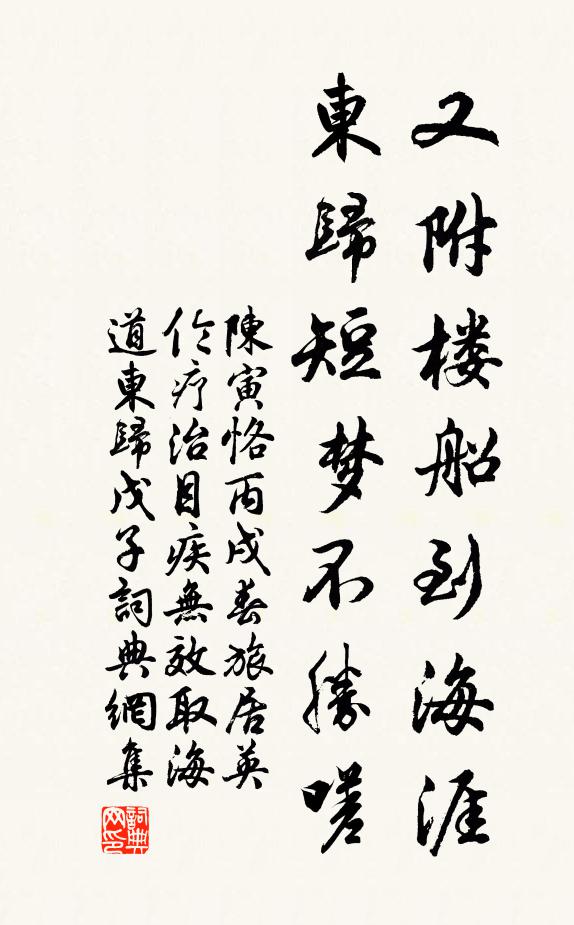 又附楼船到海涯
東歸短梦不勝嗟
陳寅恪丙戌春旅居英
伦疗治目疾無效取海
道東歸戊子詞典網集
詞典网印